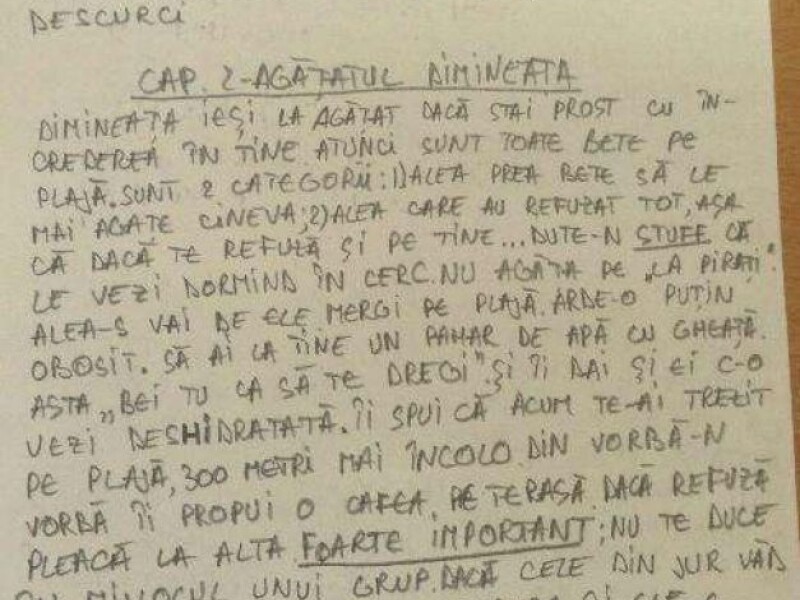 DESCURCI
CAP. 2-AGĂȚATUL DIMINEATA
DIMINEAȚA IEȘI LA AGĂȚAT DACĂ STAI PROST CU ÎN-
CREDEREA ÎN TINE ATUNCI SUNT TOATE BETE PE
PLAJĂ. SUNT 2 CATEGORII: 1) ALEA PREA BETE SĂ LE
MAI AGATE CINEVA; 2) ALEA CARE AU REFUZAT TOT, AȘA
CĂ DACĂ TE REFUZĂ ȘI PE TINE... DUTE-N STUFF CĂ
LE VEZI DORMIND ÎN CERC. NU AGĂȚA PE „LA PIRAȚI".
ALEA-S VAI DE ELE MERGI PE PLAJĂ. ARDE-O PUȚIN
OBOSIT. SĂ AI LA TINE UN PAHAR DE APĂ CU GHEAȚĂ.
ASTA „BEI TU CA SĂ TE DREGI". ȘI ÎI DAI ȘI EI C-O
VEZI DESHIDRATATĂ. ÎI SPUI CĂ ACUM TE-AI TREZIT
PE PLAJĂ, 300 METRI MAI ÎNCOLO. DIN VORBĂ-N
VORBĂ ÎI PROPUI O CAFEA PE TERASĂ. DACĂ REFUZĂ
PLEACĂ LA ALTA FOARTE IMPORTANT; NU TE DUCE
MIJLOCUL UNUI GRUP. DACĂ CELE DIN JUR VĂD